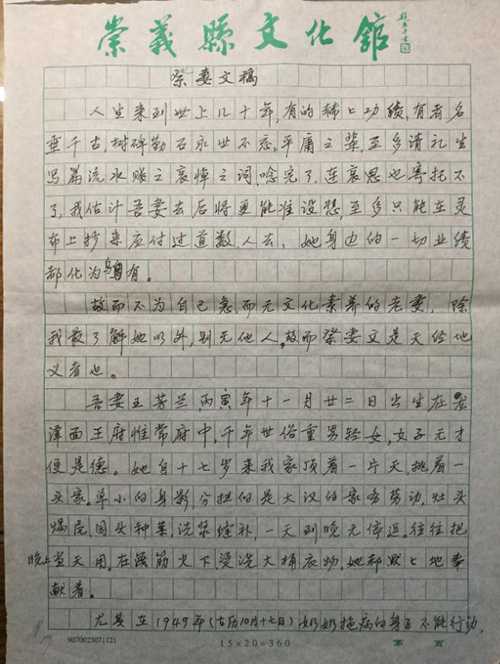 崇義縣文化館
祭妻文稿
人生来到世上几十年,有的辅上功绩,有者名
垂千古树碑勒石永世不忘。平庸之辈至多请礼生
写篇流水账之哀悼之词,唸完了,连哀思也寄托不
了,我估计吾妻去后将更能准设想,至多只能在灵
布上抄来应付过道数人去,她身边的一切业绩
都化为乌有。
故而不为自己急而无文化素养的老妻,除
我最了解她以外,别无他人,故而祭妻文是天经地
义者也。
吾妻王芳兰,丙寅年十一月廿二日出生在
潭西王府惟常府中,千年世俗重男轻女,女子无才
便是德。她自十七岁来我家顶着一片天,挑着一
头家。单小的身影,分担的是大汉的家务劳动,灶头
锅尾园头种菜,洗浆缝补,一天到晚无停逗。往往把
晚上当天用,在缓筋火下,烫洗大桶衣物,她都默上地奉
献着。
尤其在1949年(古历10月十七日)奶奶拖病的身子不能行动,
9070023071121
15×20=360
第 页